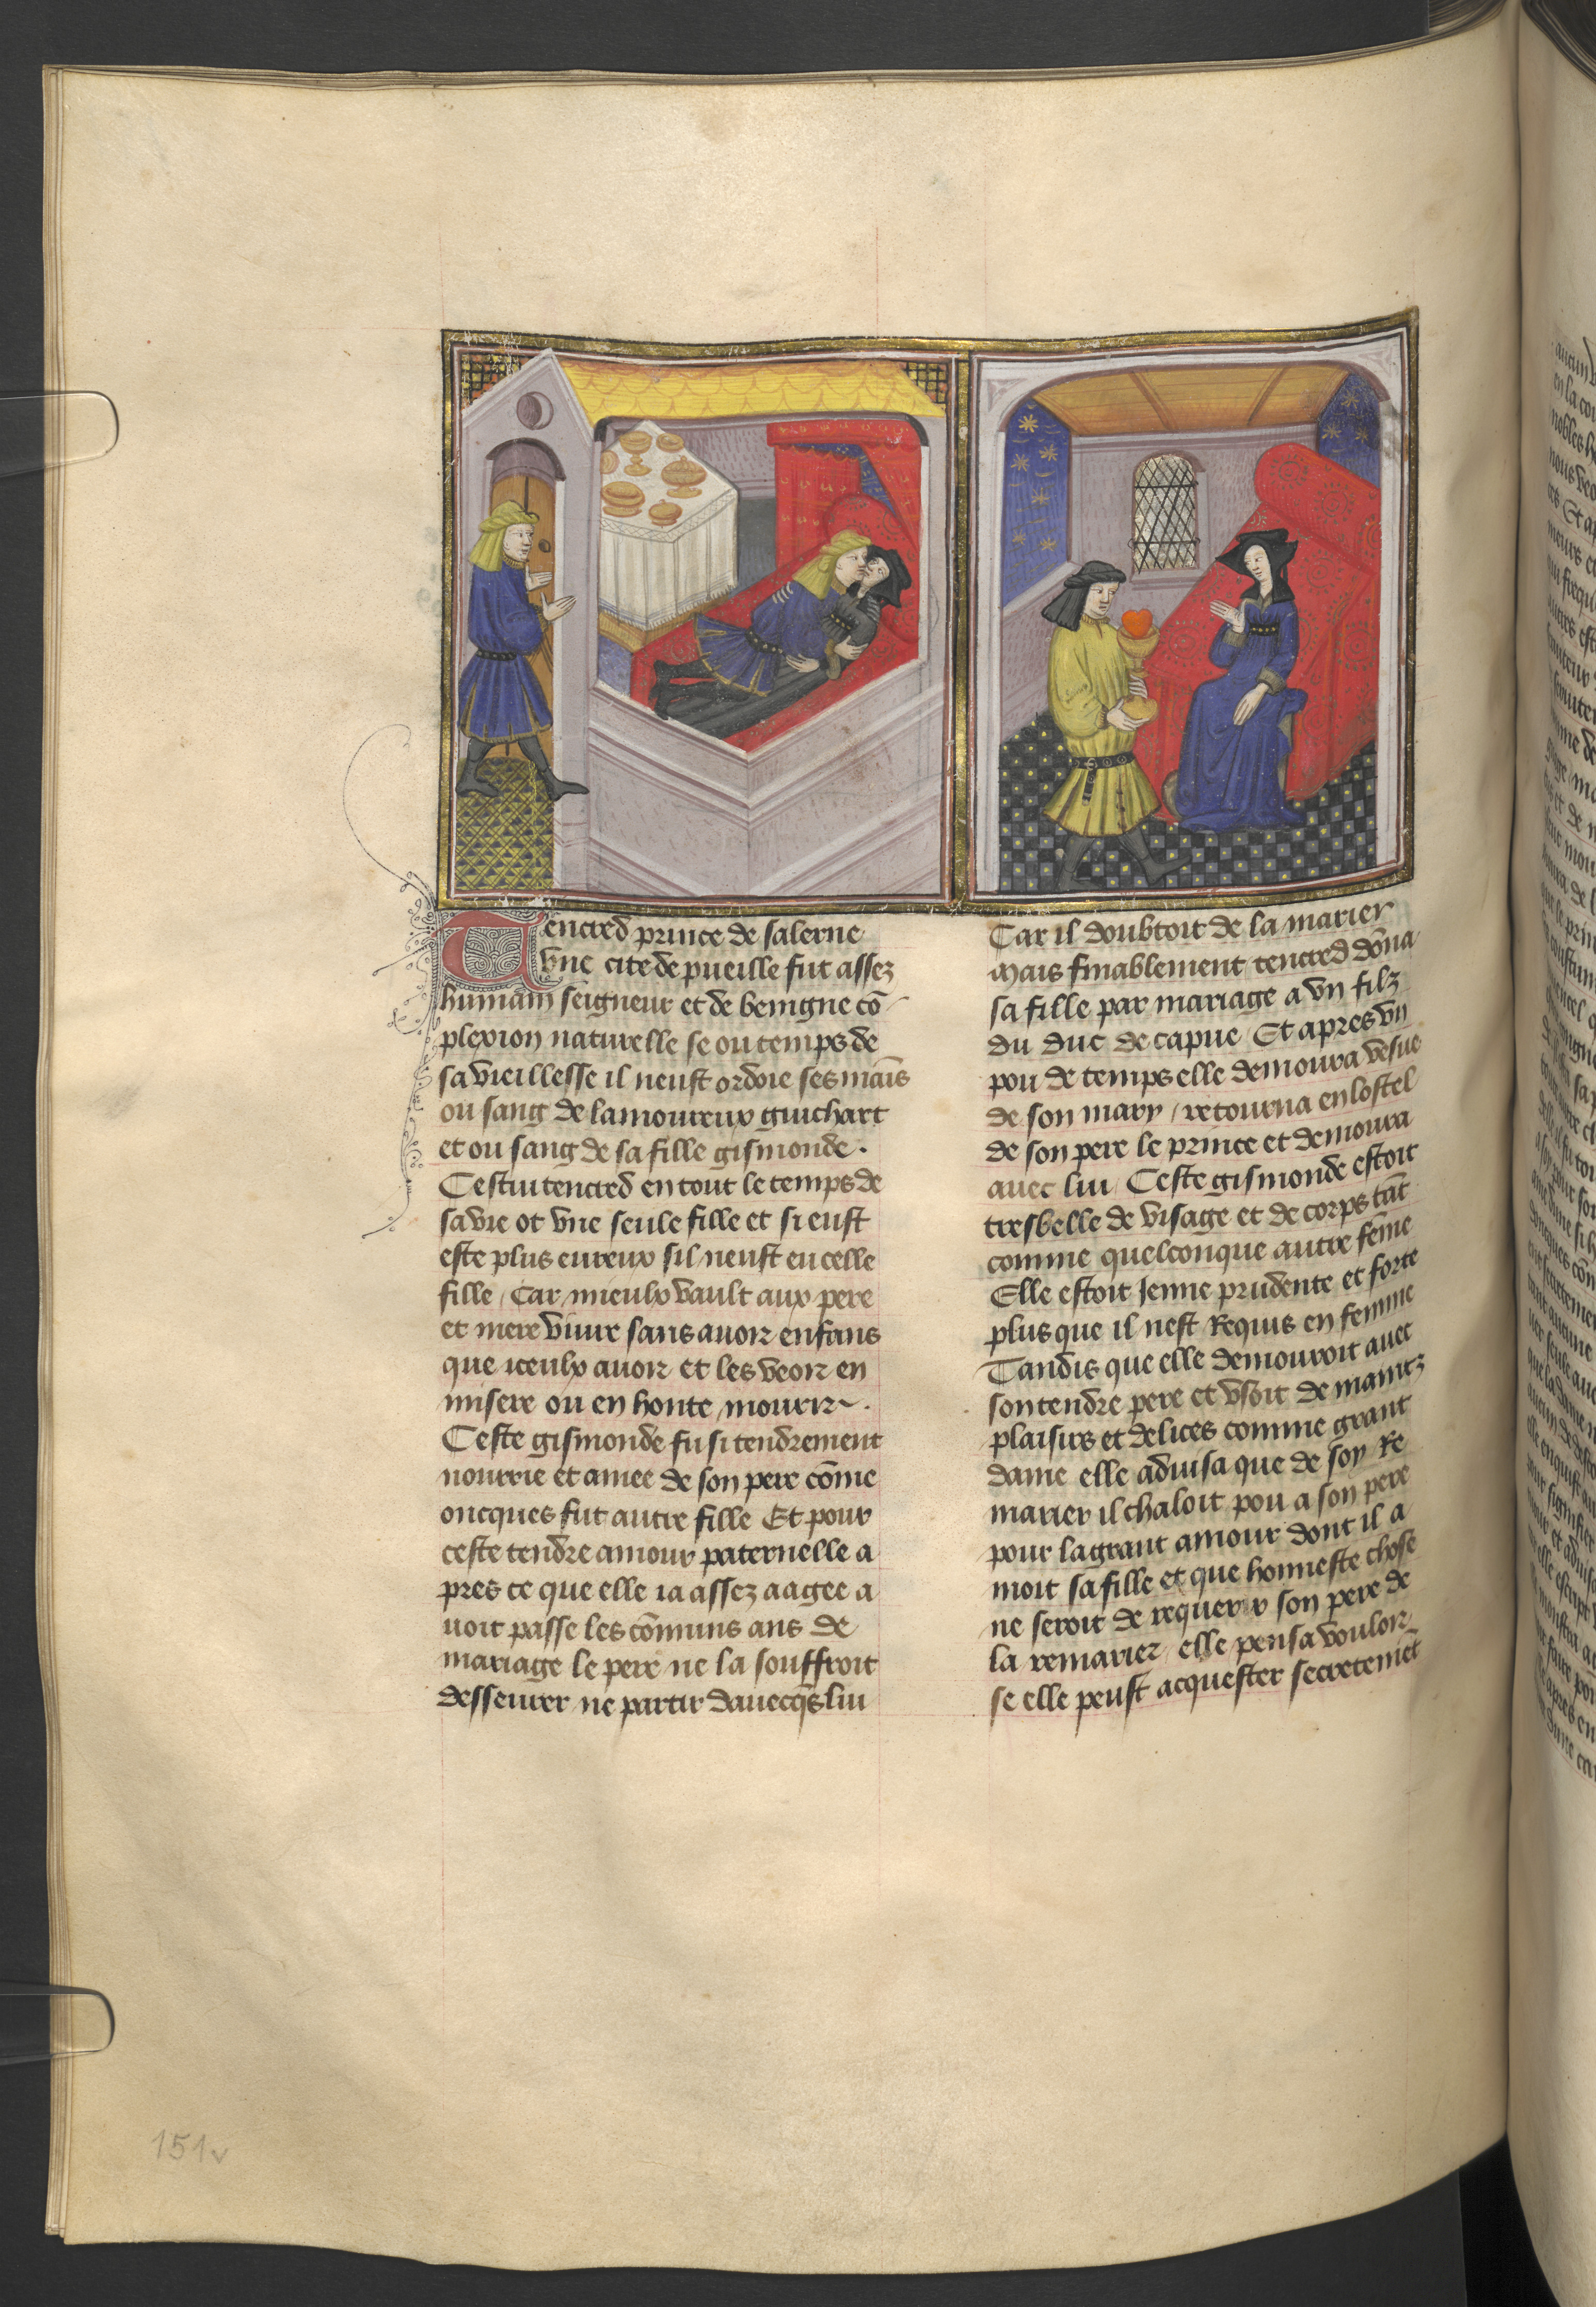 Tencred prince de salerne
vne cite de pueille fut assez
humain seigneur et de benigne cõ
plexion naturelle se ou temps de
sa vieillesse il neust ordoie ses mains
ou sang de lamoureux guichart
et ou sang de sa fille gismonde.
Cestui tencred en tout le temps de
sa vie ot vne seule fille et si eust
este plus eureux sil neust eu celle
fille / Car mieulx vault aux pere
et mere viure sans auoir enfans
que iceulx auoir et les veoir en
misere ou en honte mourir.
Ceste gismonde fu si tendrement
nourrie et amee de son pere cõme
oncques fut autre fille Et pour
ceste tendre amour paternelle a
pres ce que elle ia assez aagee a
uoit passe les cõmuns ans de
mariage le pere ne la souffroit
desseurer ne partir dauecq̃s lui
Car il doubtoit de la marier
Mais finablement tencred dõna
sa fille par mariage a vn filz
du duc de capue / Et apres vn
pou de temps elle demoura vesue
de son mary / retourna en lostel
de son pere le prince et demoura
auec lui / Ceste gismonde estoit
tresbelle de visage et de corps tãt
comme quelconque autre fẽme
Elle estoit Jenne prudente et forte
plus que il nest Requis en femme
Tandis que elle demouroit auec
son tendre pere et vsoit de maintz
plaisirs et delices comme grant
dame elle aduisa que de soy Re
marier il chaloit pou a son pere
pour la grant amour dont il a
moit sa fille et que honneste chose
ne seroit de requerir son pere de
la remarier / elle pensa vouloir
se elle peust acquester secretemẽt
151v